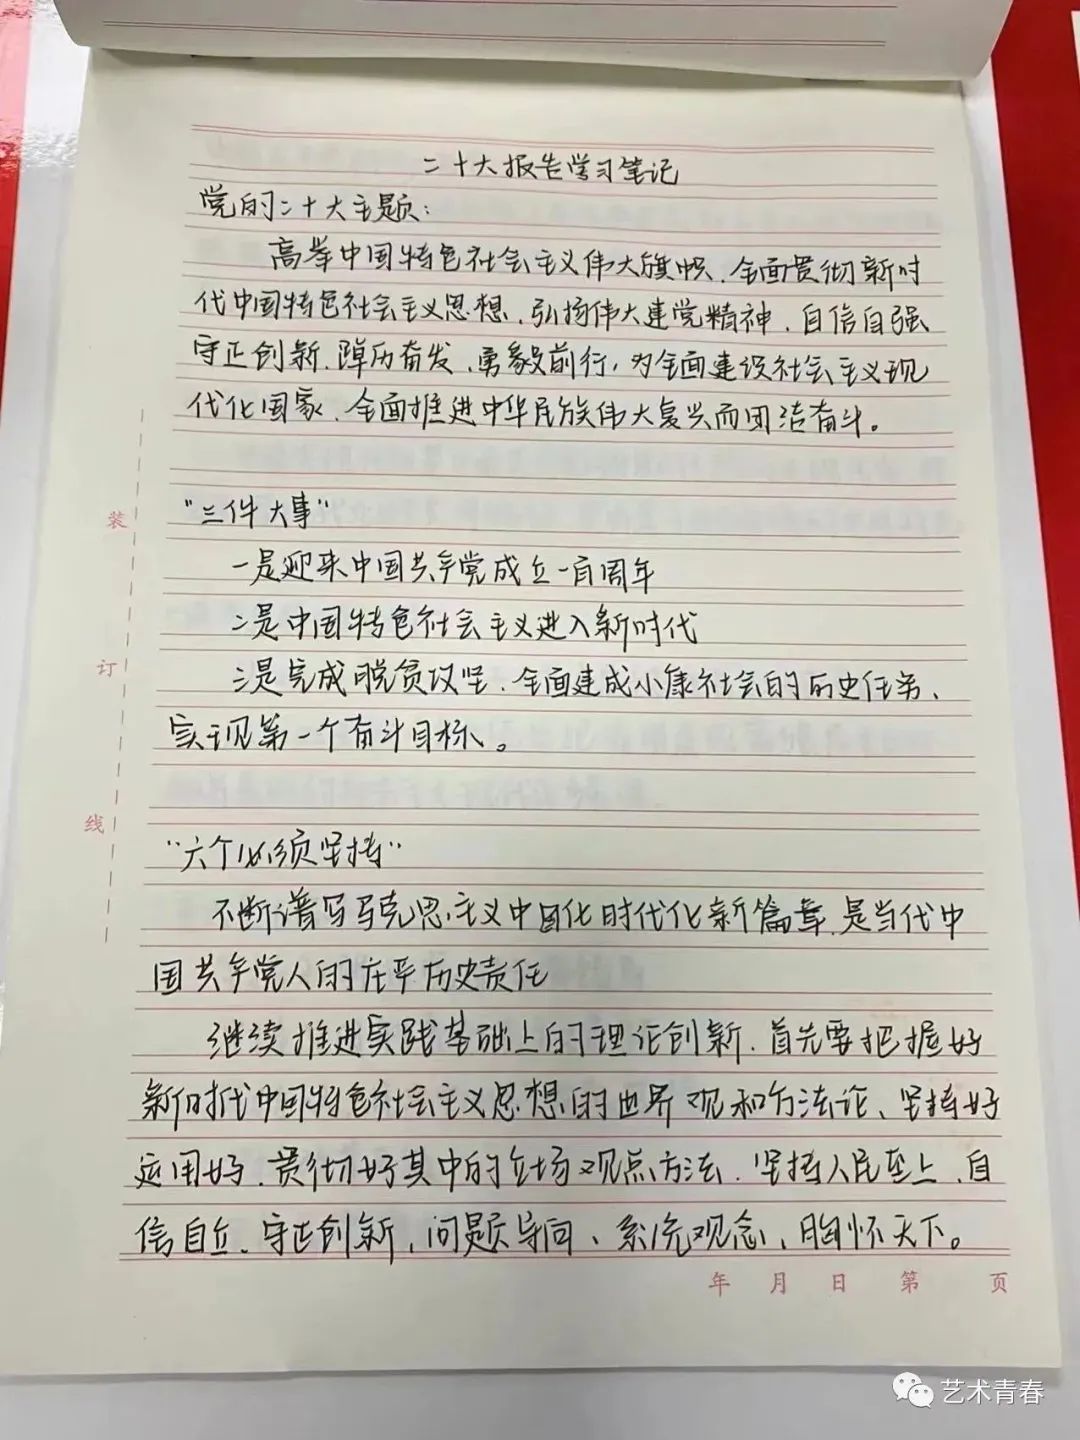 二十大报告学习笔记
党的二十大主题：
高举中国特色社会主义伟大旗帜、全面贯彻新时
代中国特色社会主义思想、弘扬伟大建党精神、自信自强
守正创新、踔厉奋发、勇毅前行，为全面建设社会主义现
代化国家、全面推进中华民族伟大复兴而团结奋斗。
"三件大事"
一是迎来中国共产党成立一百周年
二是中国特色社会主义进入新时代
三是完成脱贫攻坚、全面建成小康社会的历史任务、
实现第一个奋斗目标。
"六个必须坚持"
不断谱写马克思主义中国化时代化新篇章、是当代中
国共产党人的庄严历史责任
继续推进实践基础上的理论创新、首先要把握好
新时代中国特色社会主义思想的世界观和方法论、坚持好
运用好、贯彻好其中的立场观点方法、坚持人民至上、自
信自立、守正创新，问题导向、系统观念、胸怀天下。
装
订
线
年 月 日 第 页
艺术青春